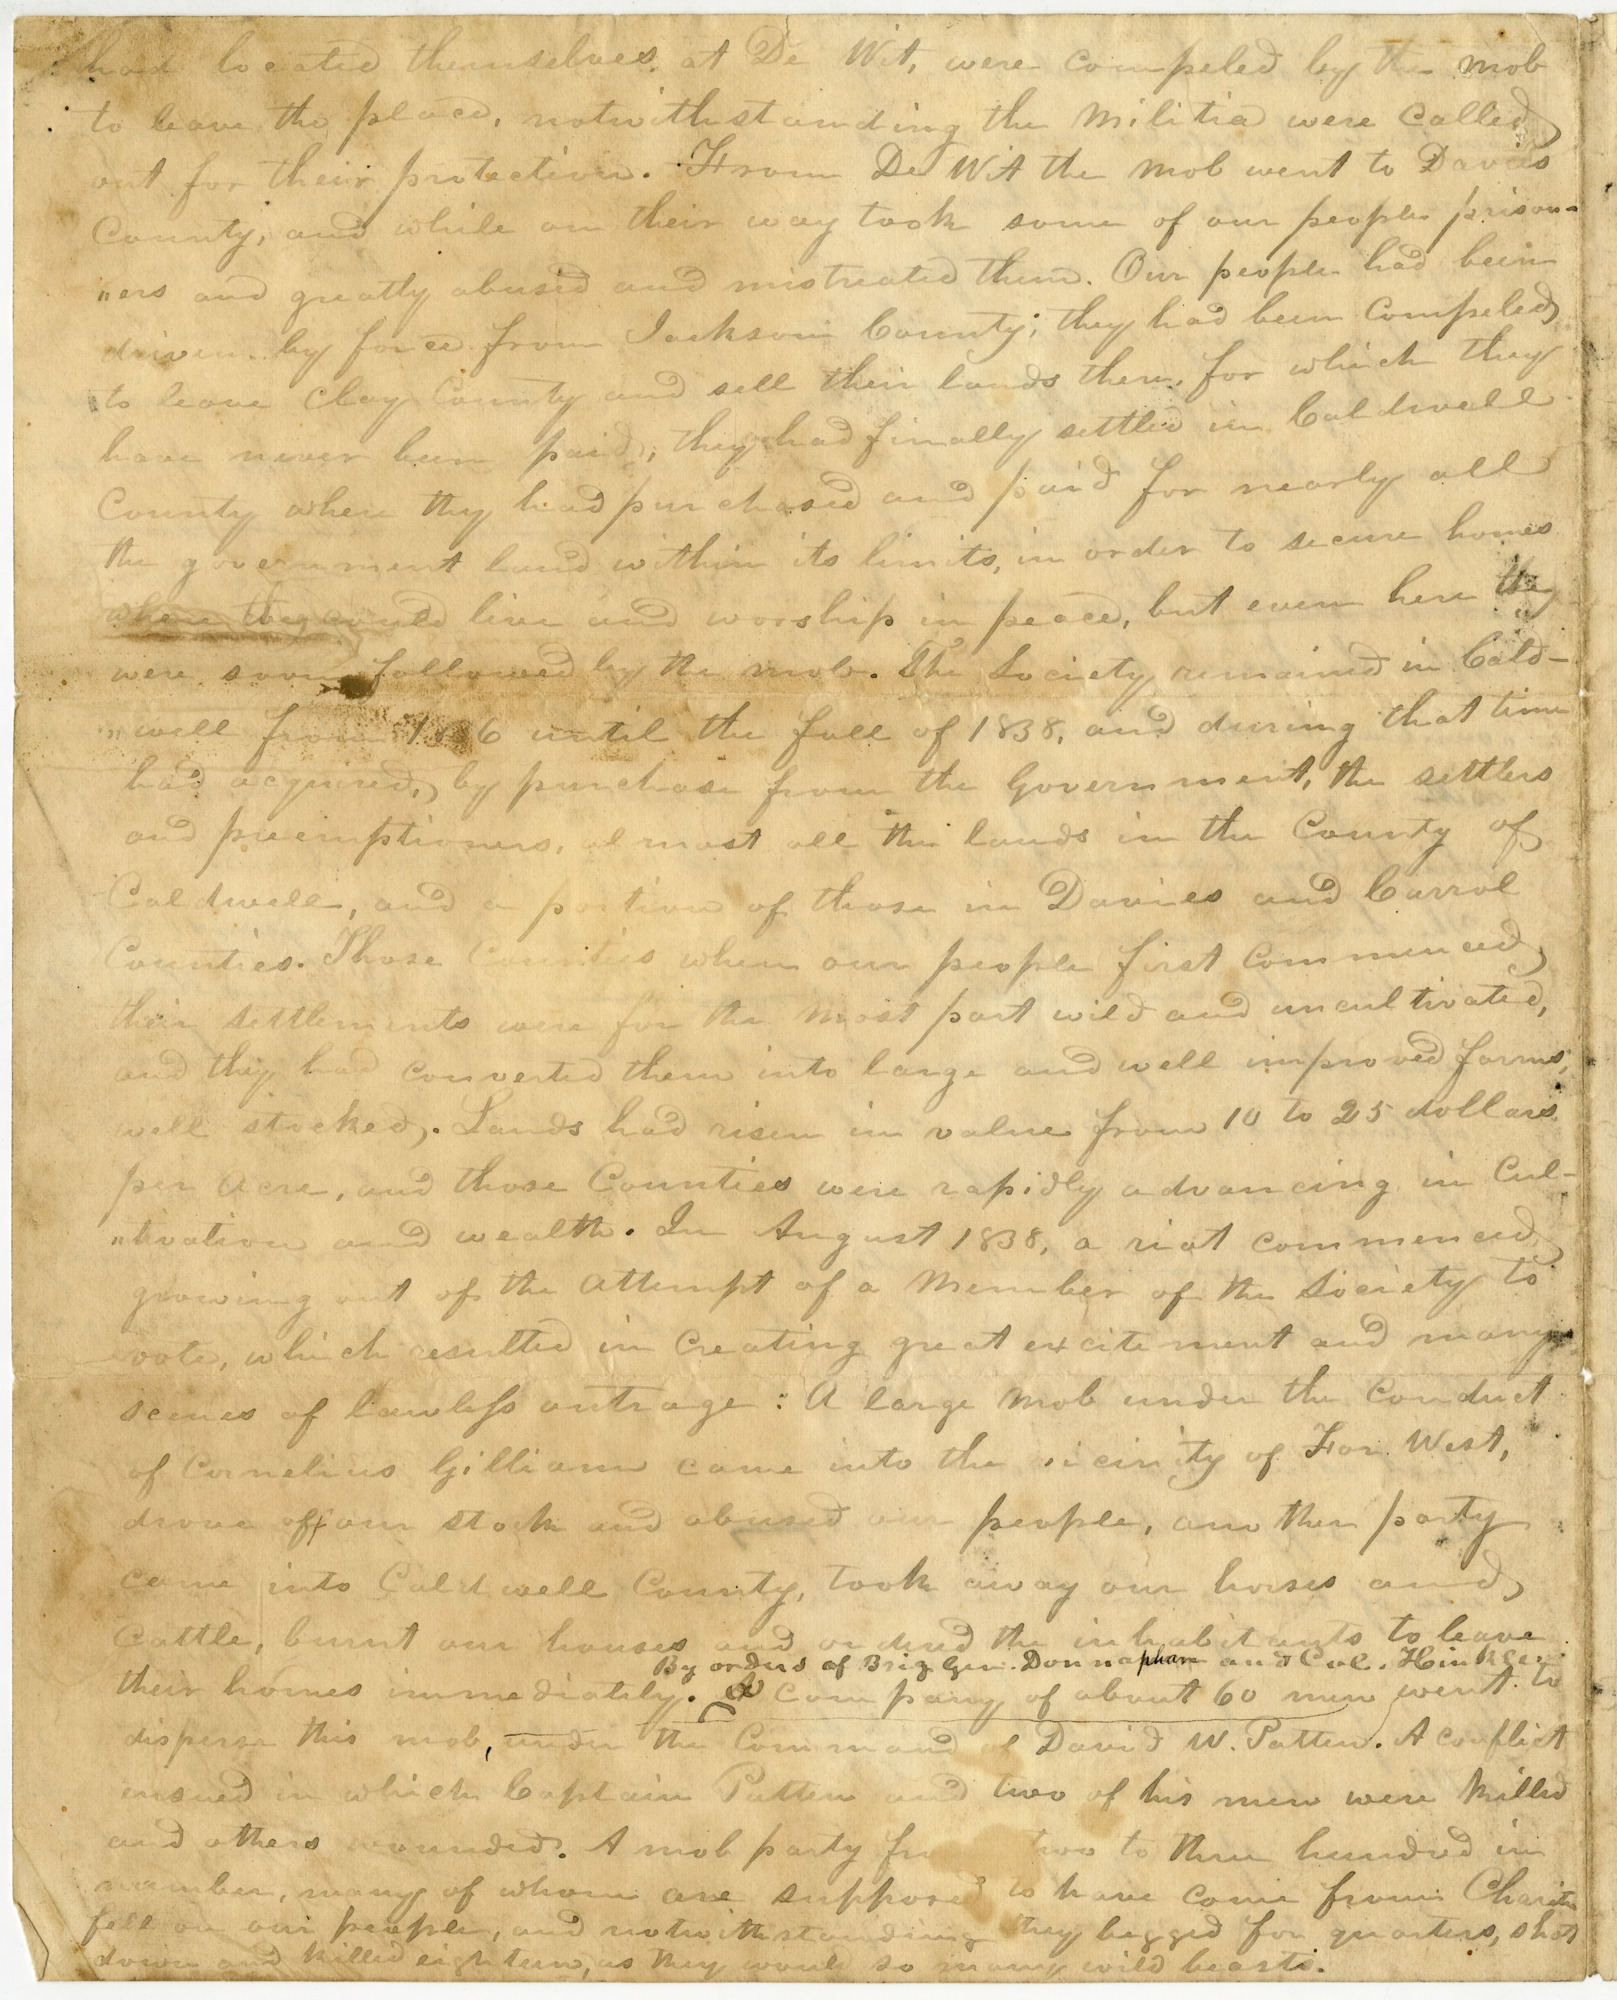 had located themselves at De Wit, were compeled by the mob
to leave the place, notwithstanding the Militia were called
out for their protection. From De Wit the mob went to Davies
County, and while on their way took some of our people prison-
"ers and greatly abused and mistreated them. Our people had been
driven by force from Jackson County; they had been compeled
to leave Clay County and sell their lands there, for which they
have never been paid; they had finally settled in Caldwell
County where they had purchased and paid for nearly all
the government land within its limits, in order to secure homes
where they could live and worship in peace, but even here they
were soon followed by the mob. The Society remained in Cald-
"well from 1836 until the fall of 1838, and during that time
had acquired, by purchase from the Government, the settlers
and preemptioners, almost all the lands in the County of
Caldwell, and a portion of those in Davies and Carrol
Counties. Those Counties when our people first commenced
their settlements were for the most part wild and uncultivated,
and they had converted them into large and well improved farms,
well stocked. Lands had risen in value from 10 to 25 dollars
per acre, and those Counties were rapidly advancing in Cul-
"tivation and wealth. In August 1838, a riot commenced
growing out of the attempt of a Member of the Society to
vote, which resulted in creating great excitement and many
scenes of lawless outrage: A large mob under the conduct
of Cornelius Gilliam came into the vicinity of Far West,
drove off our stock and abused our people, another party
came into Caldwell County, took away our horses and
cattle, burnt our houses and ordered the inhabitants to leave
By orders of Brig Gen. Donnaphan and Col. Hinkle.
their homes immediately. A company of about 60 men went to
disperse this mob, under the Command of David W. Patten. A conflict
ensued in which Captain Patten and two of his men were killed
and others wounded. A mob party two to three hundred in
number, many of whom are supposed to have come from
fell on our people, and notwithstanding they begged for quarters, shot
down and killed eighteen, as they would so many wild beasts.